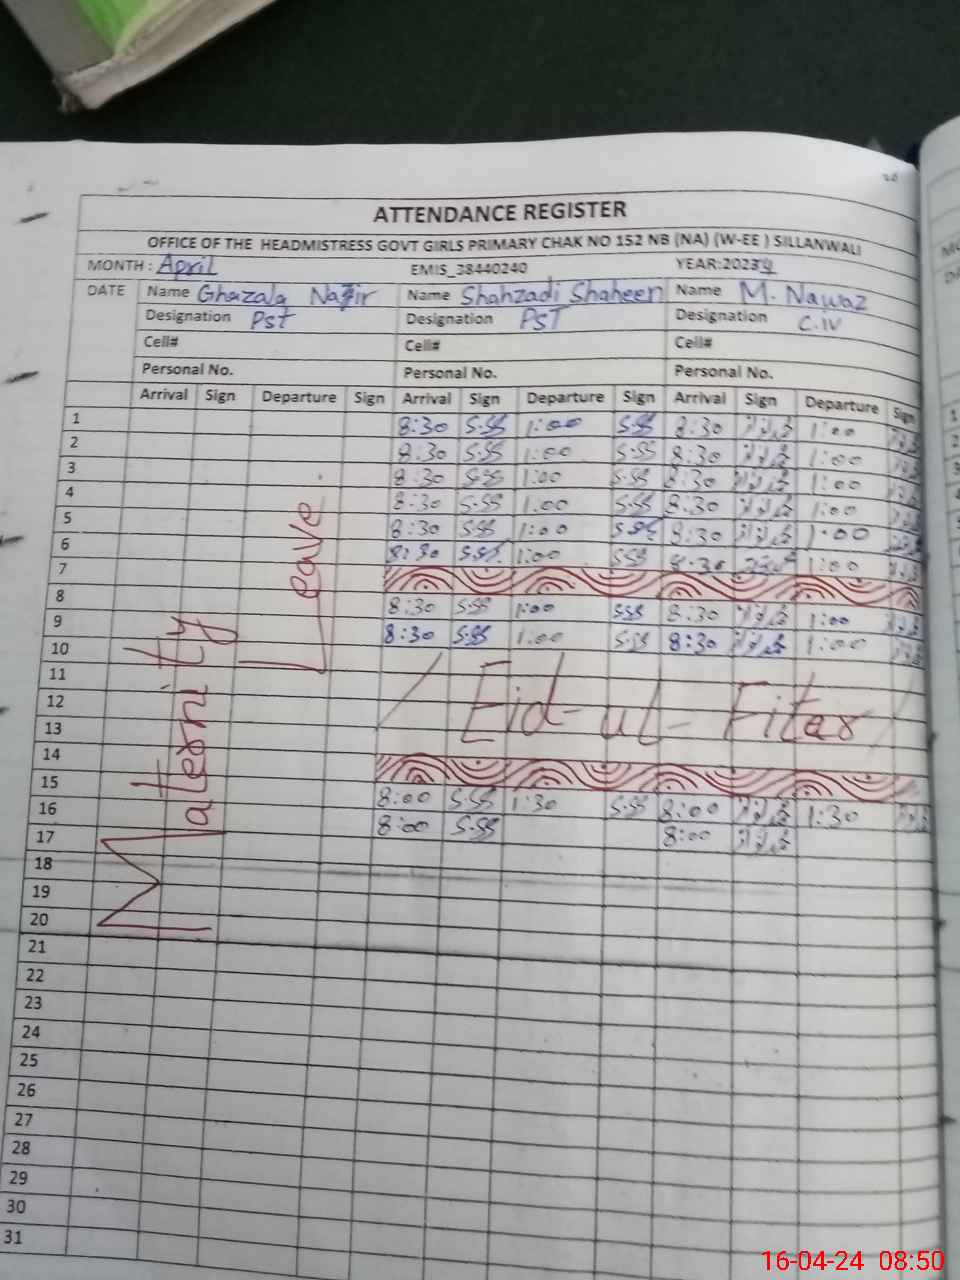 ATTENDANCE REGISTER
OFFICE OF THE HEADMISTRESS GOVT GIRLS PRIMARY CHAK NO 152 NB (NA) (W-EE ) SILLANWALI
MONTH : April EMIS_38440240 YEAR:2024
DATE Name Ghazala Nazir Name Shahzadi Shaheen Name M. Nawaz
Designation Pst Designation PST Designation C.IV
Cell# Cell# Cell#
Personal No. Personal No. Personal No.
Arrival Sign Departure Sign Arrival Sign Departure Sign Arrival Sign Departure Sign
1 8:30 S.SS 1:00 S.SS 8:30 1:00
2 8:30 S.SS 1:00 S.SS 8:30 1:00
3 8:30 S.SS 1:00 S.SS 8:30 1:00
4 8:30 S.SS 1:00 S.SS 8:30 1:00
5 8:30 S.SS 1:00 S.SS 8:30 1:00
6 8:30 S.SS 1:00 SSS 8:30 1:00
7
8 8:30 S.SS 1:00 SSS 8:30 1:00
9 8:30 S.SS 1:00 S.SS 8:30 1:00
10
11
12 Eid-ul-Fiter
13
14
15 8:00 S.SS 1:30 S.SS 8:00 1:30
16 8:00 S.SS 8:00
17
18
19
20
21
22
23
24
25
26
27
28
29
30
31
Maternity Leave
16-04-24 08:50